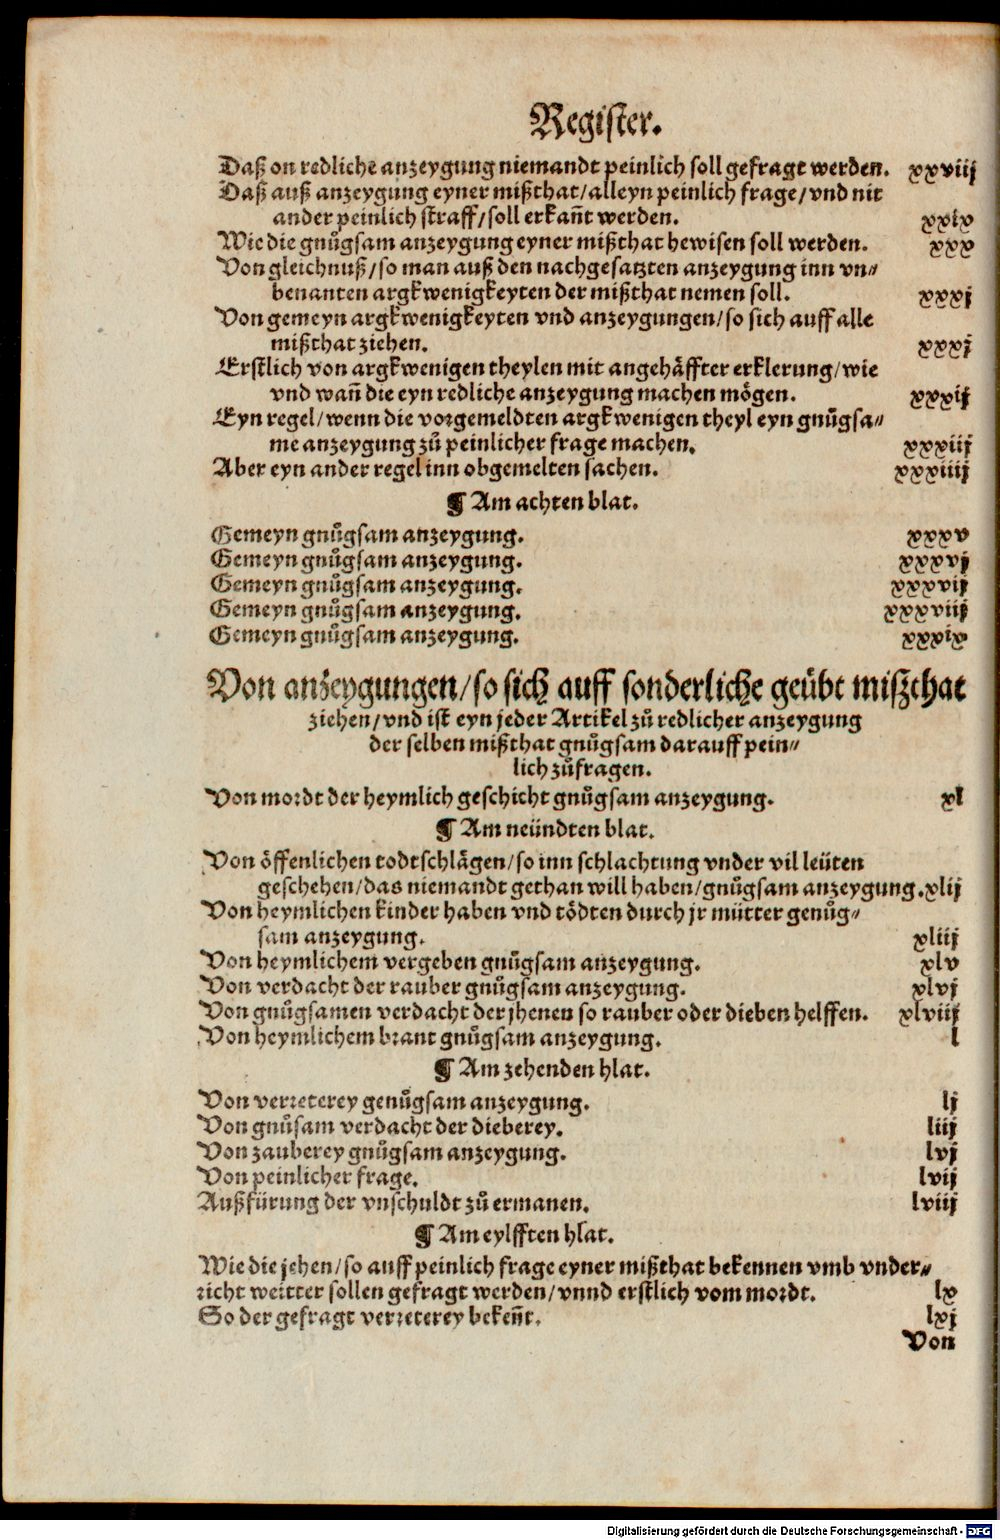 Register.
Daß on redliche anzeygung niemandt peinlich soll gefragt werden. xxviij
Daß auß anzeygung eyner mißthat/alleyn peinlich frage/vnd nit
ander peinlich straff/soll erkañt werden. xxix
Wie die gnůgsam anzeygung eyner mißthat hewisen soll werden. xxx
Von gleichnuß/so man auß den nachgesatzten anzeygung inn vn⸗
benanten argkwenigkeyten der mißthat nemen soll. xxxj
Von gemeyn argkwenigkeyten vnd anzeygungen/so sich auff alle
mißthat ziehen. xxxj
Erstlich von argkwenigen theylen mit angehåffter erklerung/wie
vnd wañ die eyn redliche anzeygung machen mögen. xxxij
Eyn regel/wenn die vorgemeldten argkwenigen theyl eyn gnůgsa⸗
me anzeygung zů peinlicher frage machen. xxxiij
Aber eyn ander regel inn obgemelten sachen. xxxiiij
¶ Am achten blat.
Gemeyn gnůgsam anzeygung. xxxv
Gemeyn gnůgsam anzeygung. xxxvj
Gemeyn gnůgsam anzeygung. xxxvij
Gemeyn gnůgsam anzeygung. xxxviij
Gemeyn gnůgsam anzeygung. xxxix
Von anzeygungen/so sich auff sonderliche geübt miszthat
ziehen/vnd ist eyn jeder Artikel zů redlicher anzeygung
der selben mißthat gnůgsam darauff pein⸗
lich zůfragen.
Von mordt der heymlich geschicht gnůgsam anzeygung. xl
¶ Am neündten blat.
Von öffenlichen todtschlägen/so inn schlachtung vnder vil leüten
geschehen/das niemandt gethan will haben/gnůgsam anzeygung. xlij
Von heymlichen kinder haben vnd tödten durch jr mütter genůg⸗
sam anzeygung. xliij
Von heymlichem vergeben gnůgsam anzeygung. xlv
Von verdacht der rauber gnůgsam anzeygung. xlvj
Von gnůgsamen verdacht der jhenen so rauber oder dieben helffen. xlviij
Von heymlichem brant gnůgsam anzeygung. l
¶ Am zehenden hlat.
Von verreterey genůgsam anzeygung. lj
Von gnůsam verdacht der dieberey. liij
Von zauberey gnůgsam anzeygung. lvj
Von peinlicher frage. lvij
Außfürung der vnschuldt zů ermanen. lviij
¶ Am eylfften hlat.
Wie die jehen/so auff peinlich frage eyner mißthat bekennen vmb vnder⸗
richt weitter sollen gefragt werden/vnnd erstlich vom mordt. lx
So der gefragt verreterey bekeñt. lxj
Von
Digitalisierung gefördert durch die Deutsche Forschungsgemeinschaft - DFG